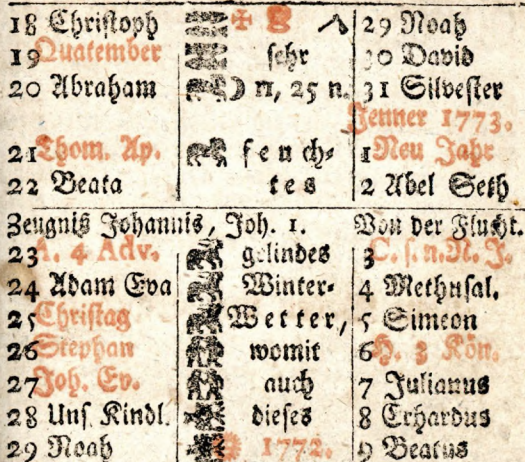 18 Christoph 29 Noah
19 Quatember sehr 30 David
20 Abraham n, 25 n. 31 Silvester
Jenner 1773.
21 Thom. Ap. feuch⸗ 1 Neu Jahr
22 Beata tes 2 Abel Seth
Zeugniß Johannis, Joh. 1. Von der Flucht.
23 A. 4 Adv. gelindes 3 C. s. n. N. J.
24 Adam Eva Winter⸗ 4 Methusal.
25 Christag Wetter, 5 Simeon
26 Stephan womit 6 H. 3 Kön.
27 Joh. Ev. auch 7 Julianus
28 Uns. Kindl. dieses 8 Erhardus
29 Noah 1772. 9 Beatus